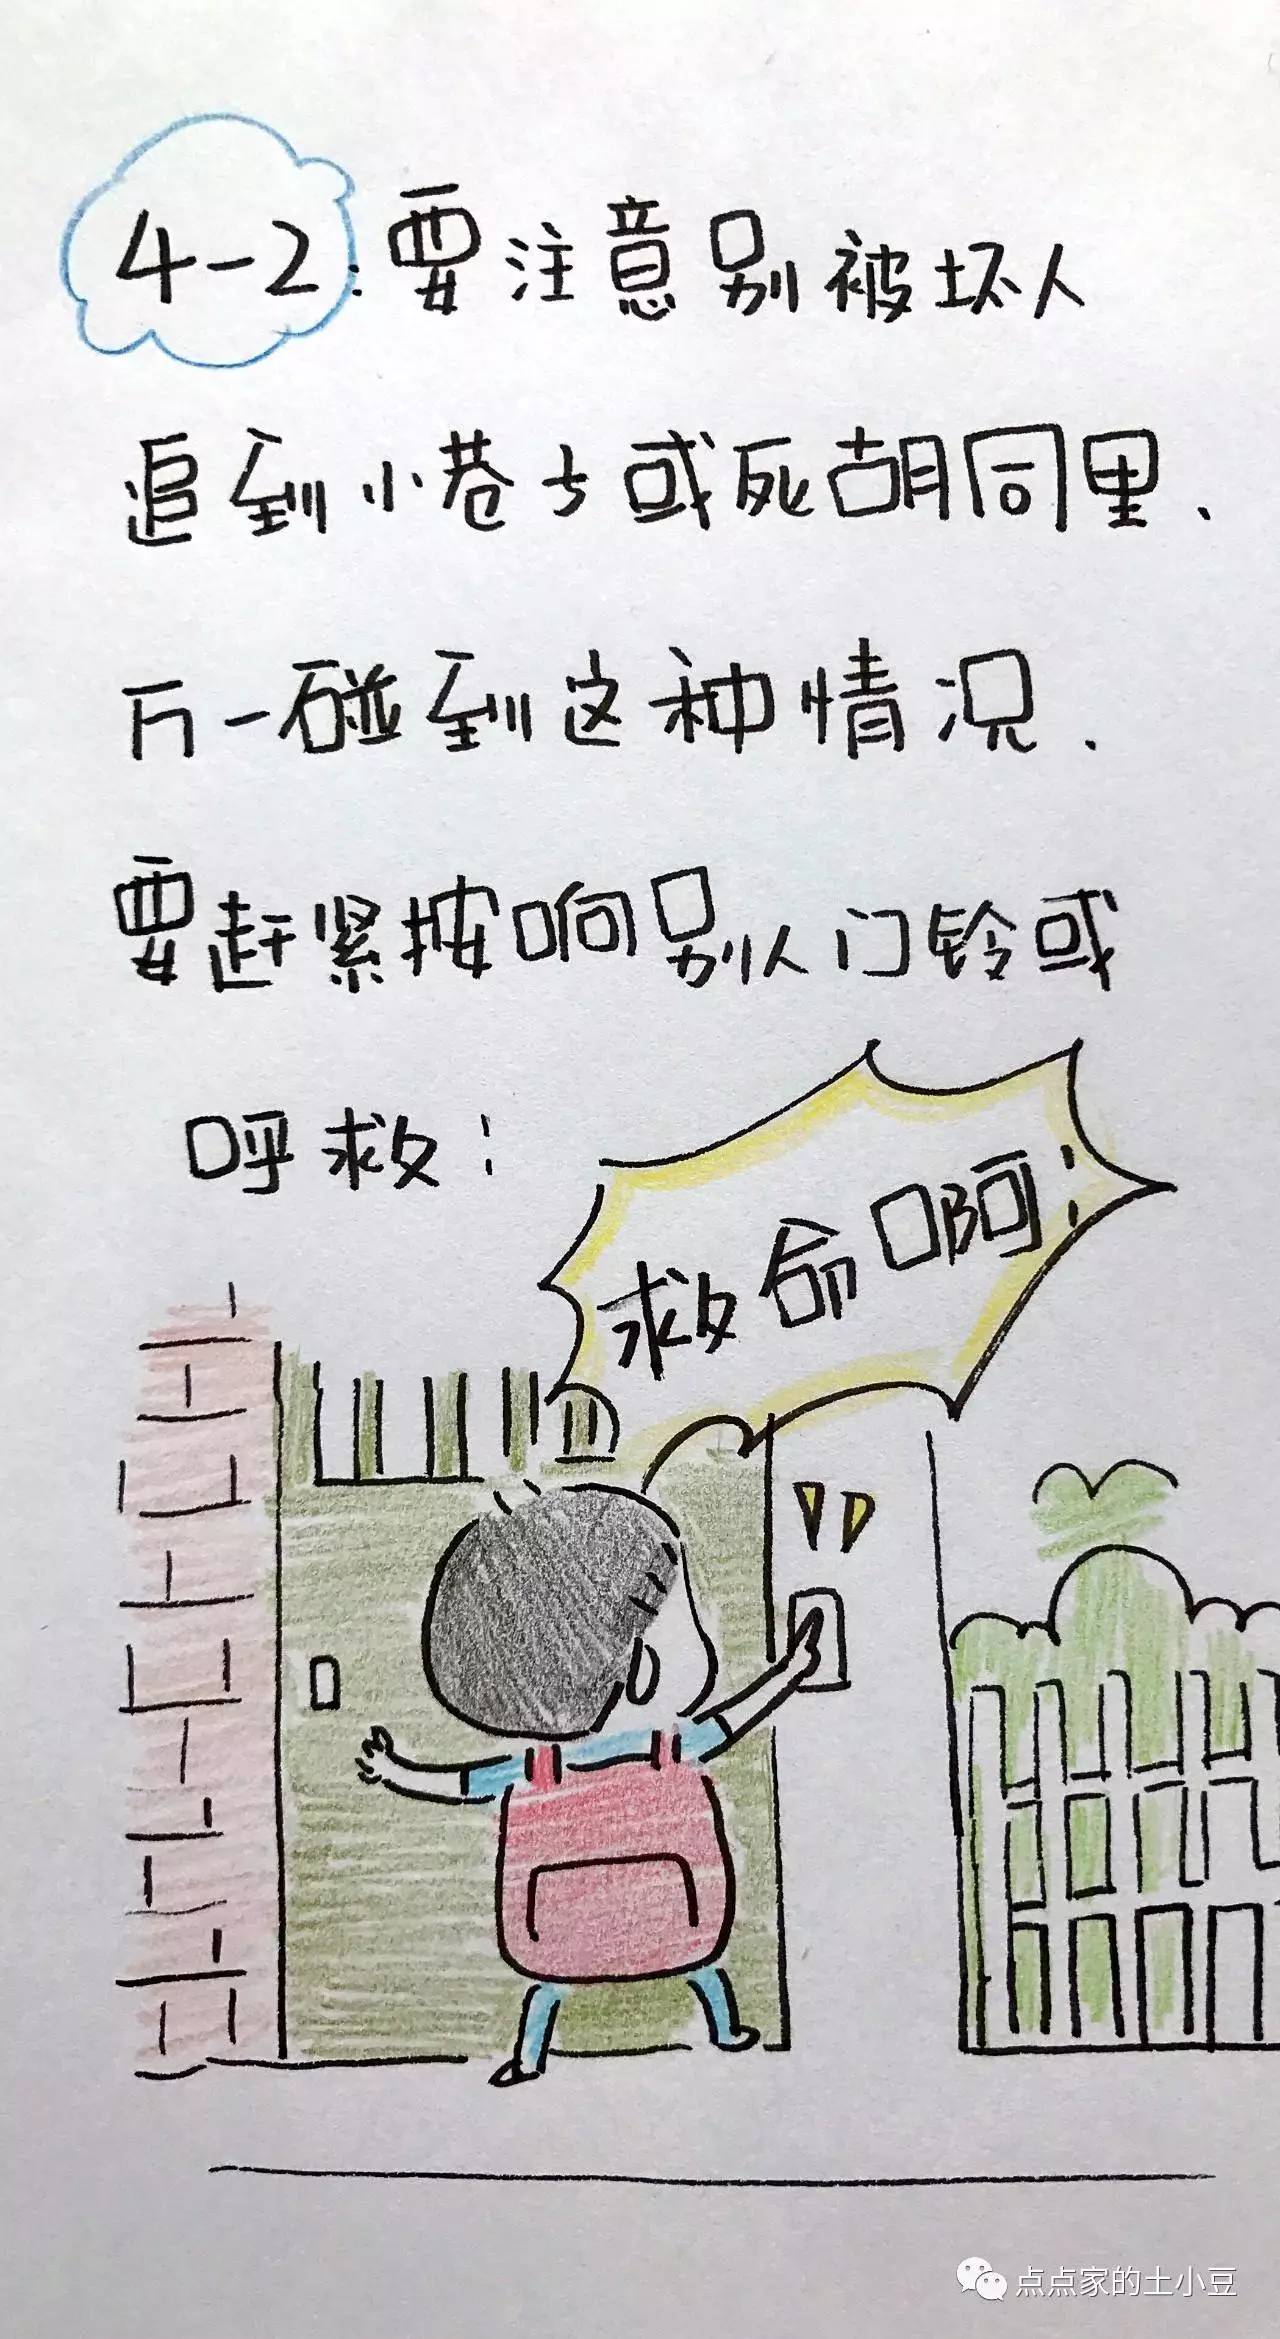 4-2:要注意别被坏人
追到小巷子或死胡同里.
万一碰到这种情况.
要赶紧按响别人门铃或
呼救:
救命啊!
点点家的土小豆